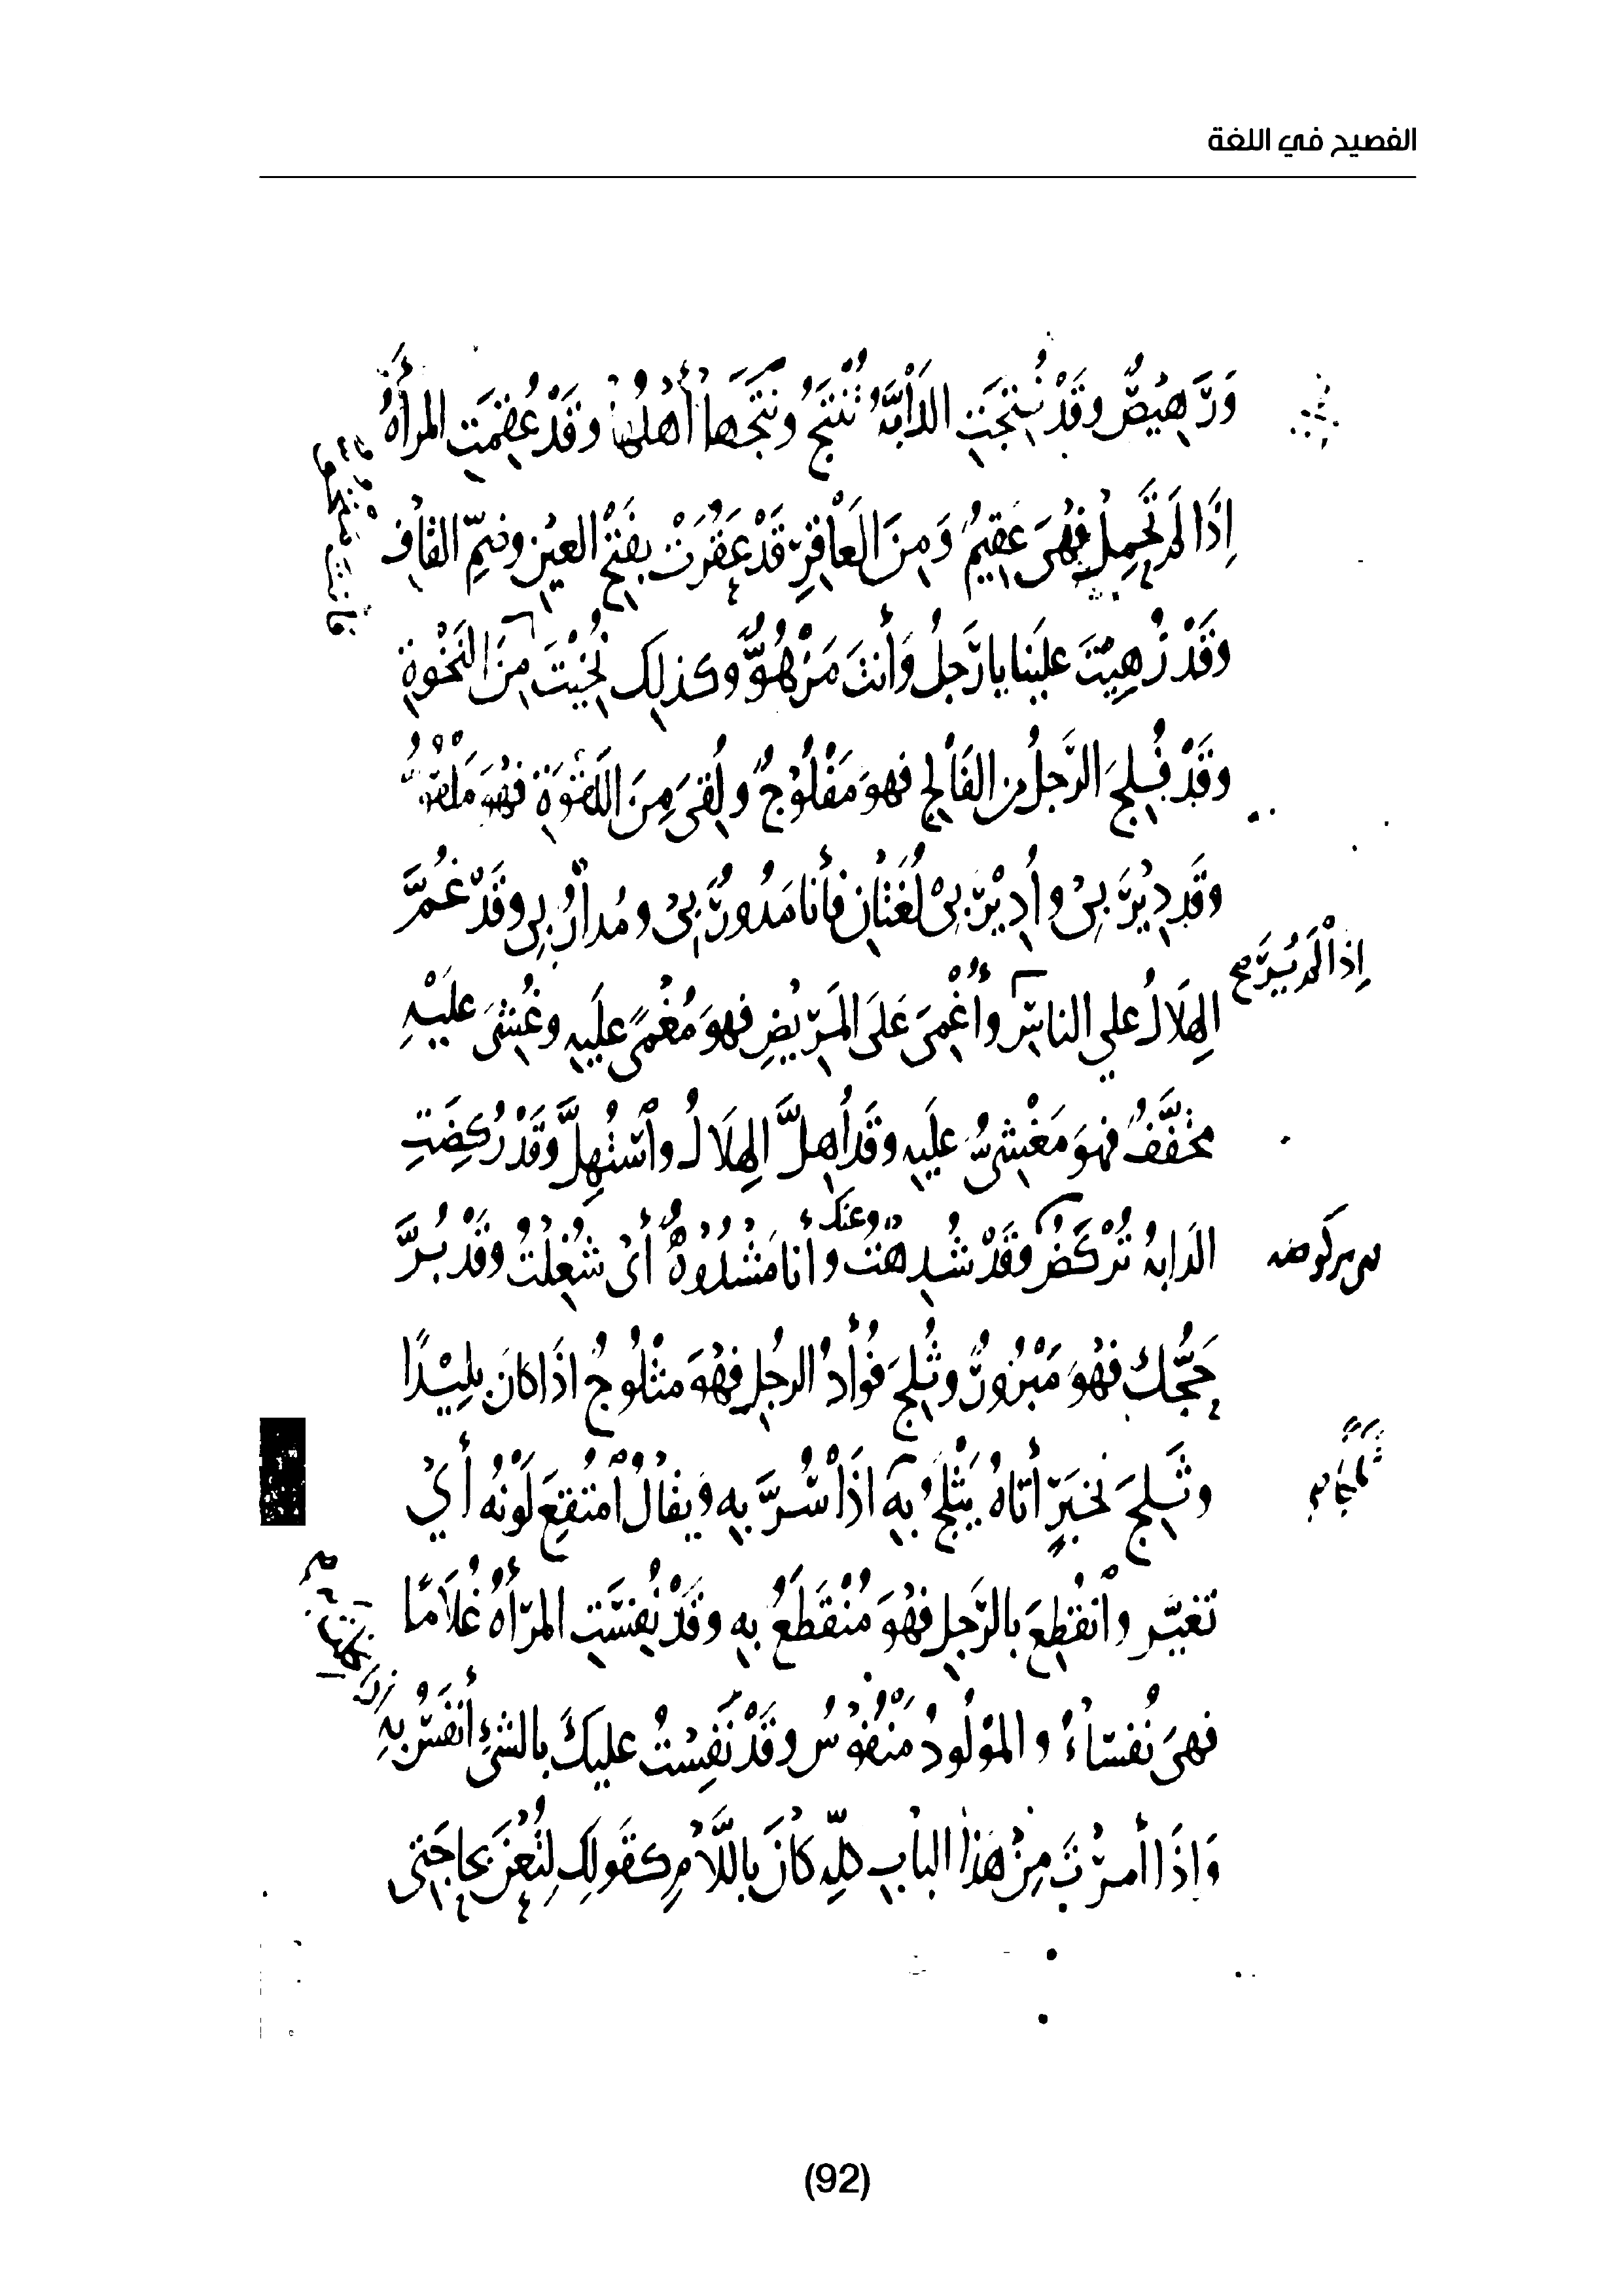 الفصيح في اللغة
وَرَهِيصٌ وقَدْ نُتِجَتِ الدَابَّةُ تُنْتَجُ ونَتَجَها أَهْلُها وقَدْ عُقِمَتِ المرأَةُ
إِذَا لَمْ تَحْمِلْ فَهْيَ عَقِيمٌ وَمِنَ العَاقِرِ قَدْ عَقُرَتْ بِفَتْحِ العَيْنِ وضَمِّ القافِ
وقَدْ زُهِيتَ علَينا يا رَجلُ وَأَنتَ مَزْهُوٌّ وكذلِك نُخِيْتَ مِنَ النَخْوةِ
وقَدْ فُلِجَ الرَّجلُ من الفَالِجِ فهوَ مَفْلُوْجٌ ولُقِيَ مِنَ اللَقْوَةِ فهُوَ مَلْقُوٌّ
وقَد دِيْرَ بِيْ وأُدِيْرَ بِيْ لُغَتَانِ فأَنا مَدُورٌ بِيْ ومُدارٌ بِي وقَدْ غُمَّ
إِذا لَمْ يُرَ صح
الهِلَالُ علي الناسِ وأُغْمِيَ عَلَى المَرِيْضِ فهوَ مُغْمًى علَيهِ وغُشِيَ علَيْهِ
مخفَّفٌ فهوَ مَغْشِيٌّ علَيهِ وقَد أُهِلَّ الهِلَالُ وٱسْتُهِلَّ وقَدْ رُكِضَتِ
الدَابةُ تُرْكَضُ وقَدْ شُدِهْتُ وأَنا مَشْدُوْهٌ أَىْ شُغِلْتُ وقَدْ بُرَّ
وعنك
حَجُّكَ فهُوَ مَبْرُورٌ وثُلِجَ فُؤَادُ الرجُلِ فهُوَ مثْلُوجٌ اذَا كانَ بلِيْدًا
وثَلِجَ بخبَرٍ أَتاهُ يَثْلَجُ بهِ اذَا سُرَّ بِهِ ويقالُ ٱمْتُقِعَ لَوْنُه أَيْ
تغيّر وٱنْقُطِعَ بالرَّجلِ فهُوَ مُنْقَطَعٌ بهِ وقَدْ نُفِسَتِ المرْأَةُ غُلَامًا
فهىَ نُفَسَاءُ والمَوْلُودُ مَنْفُوْسٌ وقَدْ نَفِسْتُ عليكَ بالشيءِ أَنفَسُ بهِ
وَاِذَا أَمرْتَ مِنْ هَذا البابِ كلِّهِ كانَ باللَّامِ كقَولِكِ لِتُعْنَ بحاجَتي
(92)